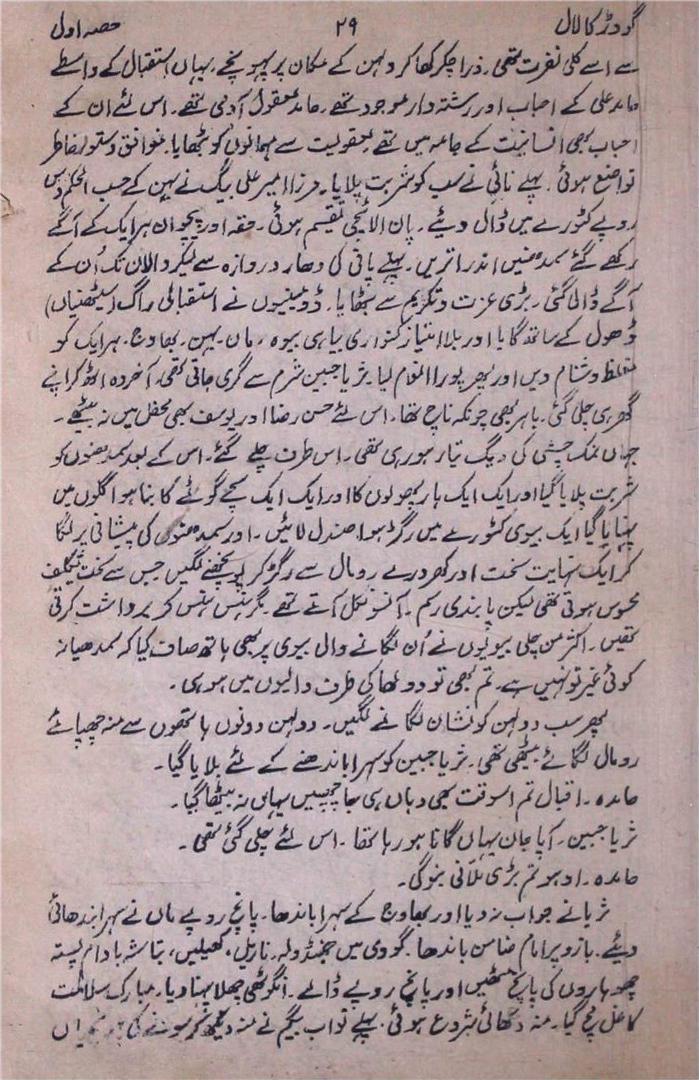 گودڑ کا لال ۲۹ حصہ اول
سے اسے کلی نفرت تھی۔ ذرا چکر کھا کر دلہن کے مکان پر پہونچے۔ یہاں استقبال کے واسطے
حامد علی کے احباب اور رشتہ دار موجود تھے۔ حامد معقول آدمی تھے۔ اس لئے ان کے
احباب بھی انسانیت کے جامہ میں تھے معقولیت سے مہمانوں کو بٹھایا۔ موافق دستور خاطر
تواضع ہوئی۔ پہلے نائی نے سب کو شربت پلایا۔ مرزا امیر علی بیگ نے بہن کے حسب الحکم دس
روپے کٹورے میں ڈال دیئے۔ پان الائچی تقسیم ہوئی۔ حقہ اور پیچوان ہر ایک کے آگے
رکھے گئے سمدھنیں اندر اتریں۔ پہلے پانی کی دھار دروازہ سے لیکر دالان تک اُن کے
آگے ڈالی گئی۔ بڑی عزت و تکریم سے بٹھایا۔ ڈومنیوں نے استقبالی راگ (سیٹھنیاں)
ڈھول کے ساتھ گایا اور بلا امتیاز کنواری بیاہی بیوہ، ماں۔ بہن۔ بھاوج۔ ہر ایک کو
مغلظ دشنام دیں اور پھر پورا انعام لیا۔ ثریا جبین شرم سے گری جاتی تھی، آخر وہ اٹھ کر اپنے
گھر ہی چلی گئی۔ باہر بھی چونکہ ناچ تھا۔ اس لئے حسن رضا اور یوسف بھی محفل میں نہ بیٹھے۔
جہاں نمک چشی کی دیگ تیار ہو رہی تھی۔ اس طرف چلے گئے۔ اس کے بعد سمدھنوں کو
شربت پلایا گیا اور ایک ایک ہار پھولوں کا اور ایک ایک سچے گوٹے کا بنا ہوا گلوں میں
پہنایا گیا ایک بیوی کٹورے میں رگڑا ہوا صندل لائیں۔ اور سمدھنوں کی پیشانی پر لگا
کر ایک نہایت سخت اور کھردرے رومال سے رگڑ کر پونچھنے لگیں جس سے سخت تکلیف
محسوس ہوتی تھی لیکن پابندی رسم۔ آنسو نکل آتے تھے۔ مگر ہنس ہنس کر برداشت کرتی
تھیں۔ اکثر من چلی بیویوں نے اُن لگانے والی بیوی پر بھی ہاتھ صاف کیا کہ سمدھیانہ
کوئی غیر تو نہیں ہے۔ تم بھی تو دولھا کی طرف والیوں میں ہو ہی۔
پھر سب دولہن کو نشان لگانے لگیں۔ دولہن دونوں ہاتھوں سے منہ چھپائے
رومال لگائے بیٹھی تھی۔ ثریا جبین کو سہرا باندھنے کے لئے بلایا گیا۔
حامدہ۔ اقبال تم اسوقت بھی وہاں ہی جا چھپیں یہاں نہ بیٹھا گیا۔
ثریا جبین۔ آپا جان یہاں گانا ہو رہا تھا۔ اس لئے چلی گئی تھی۔
حامدہ۔ اوہو تم بڑی مُلّانی بنو گی۔
ثریا نے جواب نہ دیا اور بھاوج کے سہرا باندھا۔ پانچ روپے ماں نے سہرا بندھائی
دیئے۔ بازو پر امام ضامن باندھا۔ گودی میں جھنڑولہ۔ ناریل، کھیلیں، بتاشہ بادام پستہ
چھوہاروں کی پانچ مٹھیں اور پانچ روپے ڈالے۔ انگوٹھی چھلا پہنا دیا۔ مبارک سلامت
کا غل مچ گیا۔ منہ دکھائی شروع ہوئی۔ پہلے نواب بیگم نے منہ دیکھ کر سونے کی